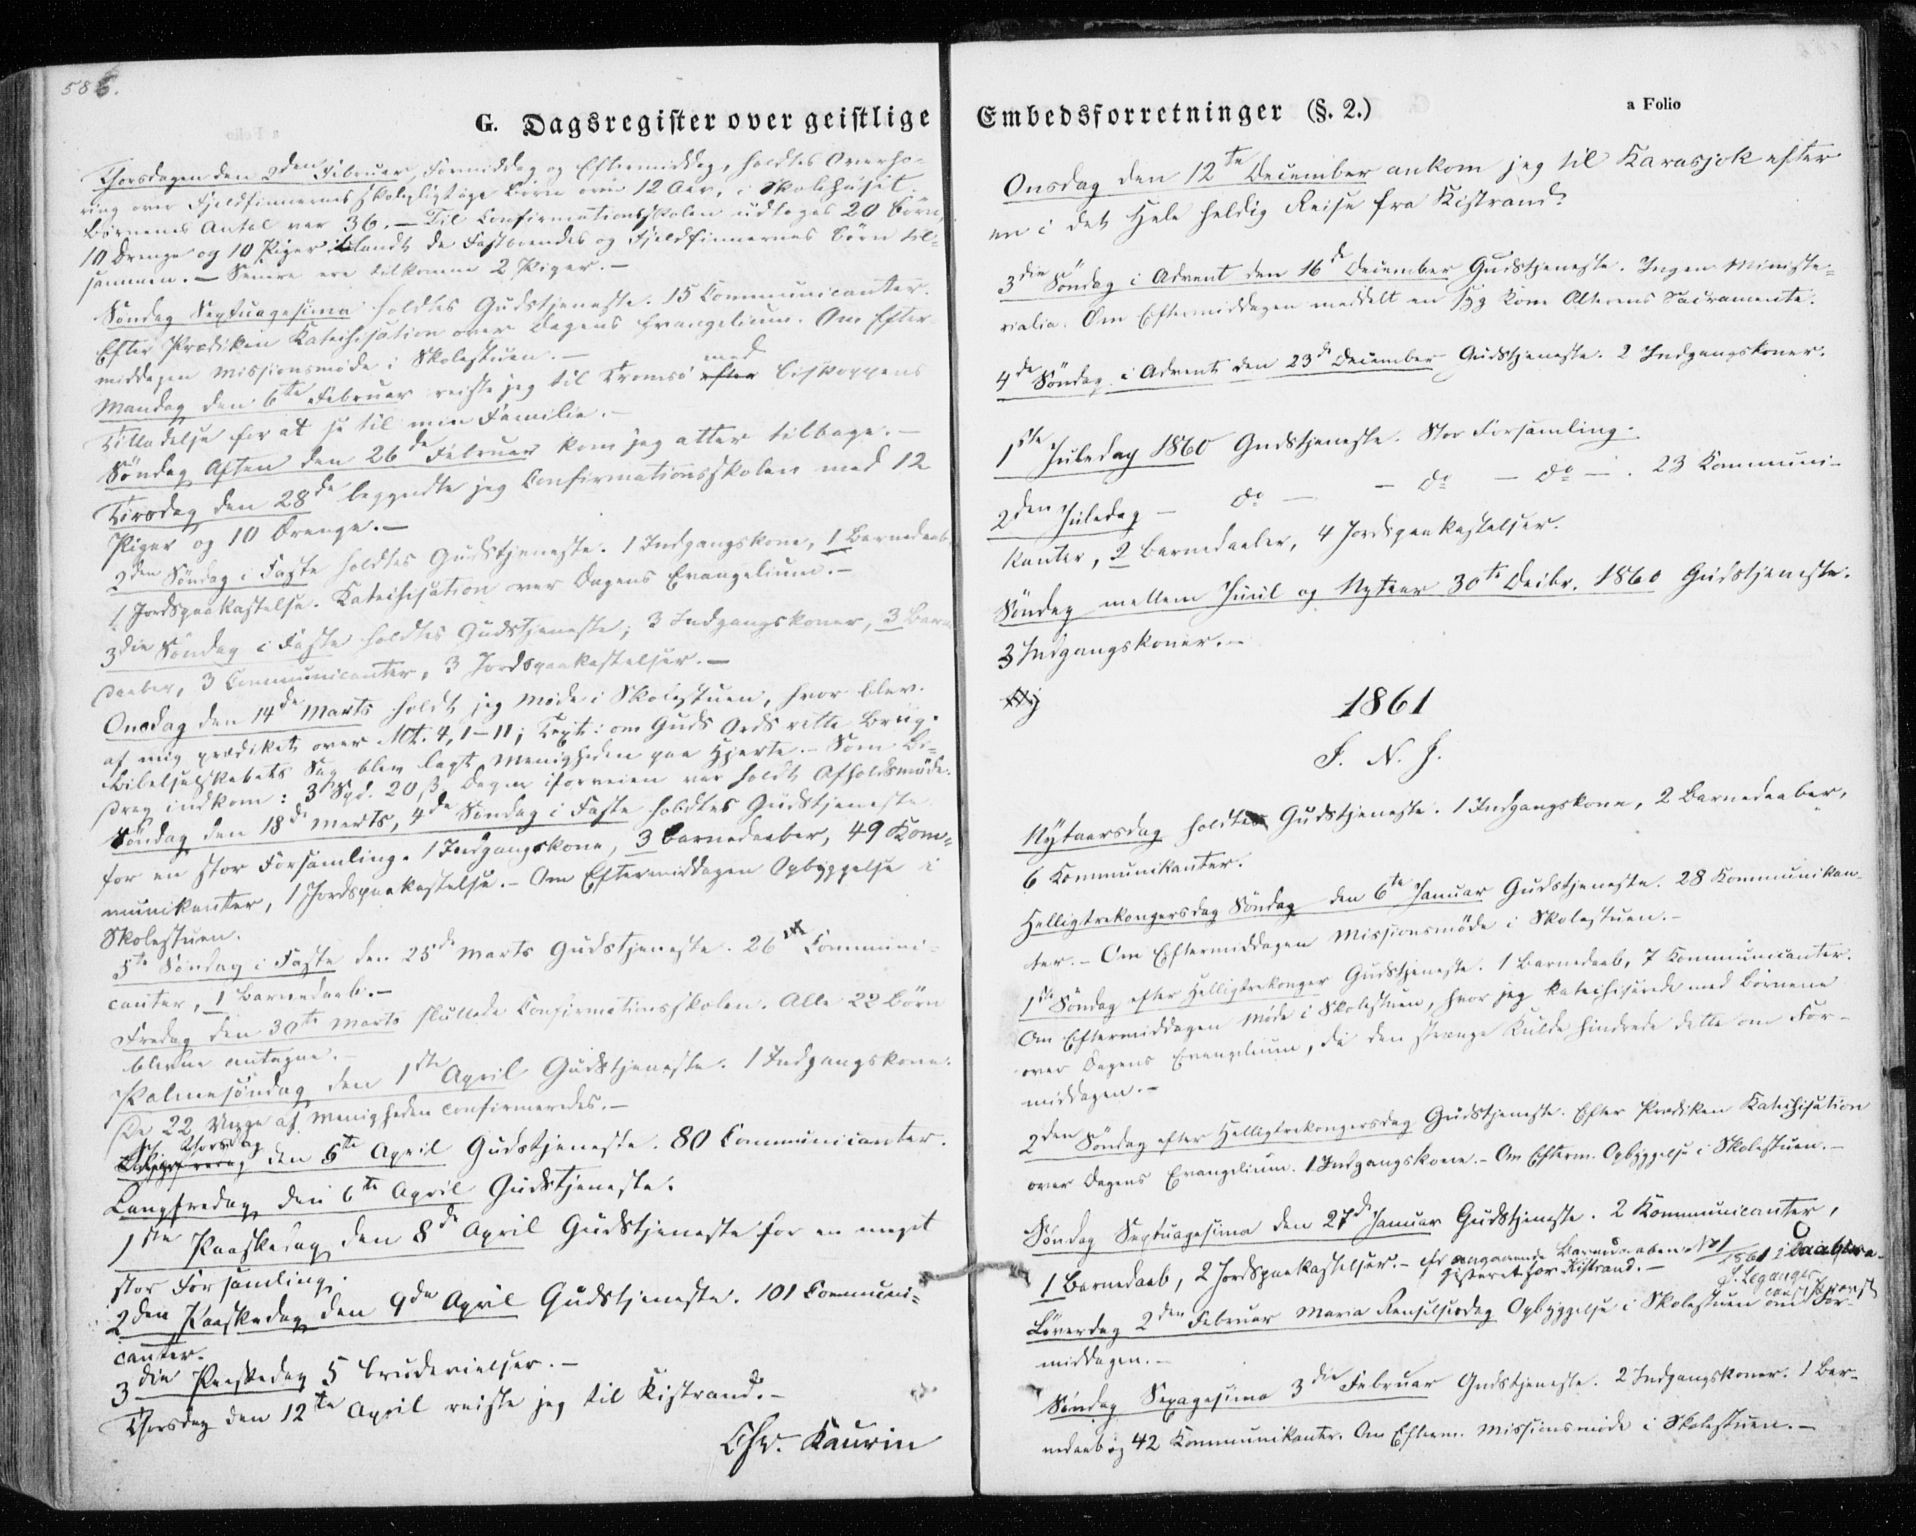 586.
G. Dagsregister over geistlige
Thorsdagen den 2den Februar Formiddag og Eftermiddag, holdtes Overhø-
ring over Fjeldfinnernes skolepligtige Børn over 12 Aar, i Skolehuset.
Børnenes Antal var 36. — Til Confirmationsskolen udtoges 20 Børn,
10 Drenge og 10 Piger iblandt de Fastboendes og Fjeldfinnernes Børn til-
sammen. — Senere ere tilkomne 2 Piger. —
Søndag Septuagesima holdtes Gudstjeneste. 15 Communicanter.
Efter Prædiken Katechisation over Dagens Evangelium. Om Efter-
middagen Missionsmøde i Skolestuen. —
Mandag den 6te Februar reiste jeg til Tromsø efter med Biskoppens
Tilladelse for at se til min Familie. —
Søndag Aften den 26de Februar kom jeg atter tilbage. —
Tirsdag den 28de begyndte jeg Confirmationsskolen med 12
Piger og 10 Drenge. —
2den Søndag i Faste holdtes Gudstjeneste. 1 Indgangskone, 1 Barnedaab,
1 Jordspaakastelse. Katechisation over Dagens Evangelium. —
3die Søndag i Faste holdtes Gudstjeneste; 3 Indgangskoner, 3 Barne
daaber, 3 Communicanter, 3 Jordspaakastelser. —
Onsdag den 14de Marts holdt jeg Møde i Skolestuen, hvor blev
af mig prædiket over Mt. 4, 1-11; Text: om Guds Ords rette Brug.
Bibelselskabets Sag blev lagt Menigheden paa Hjerte. — Som Bi-
drag indkom: 3 Spd. 20 ß. Dagen iforveien var holdt Afholdsmøde.
Søndag den 18de Marts, 4de Søndag i Faste holdtes Gudstjeneste
for en stor Forsamling. 1 Indgangskone, 3 Barnedaaber, 49 Kom-
munikanter, 1 Jordspaakastelse. — Om Eftermiddagen Opbyggelse i
Skolestuen.
5te Søndag i Faste den 25de Marts Gudstjeneste. 26 Communi-
canter, 1 Barnedaab. —
Fredag den 30te Marts sluttede Confirmationsskolen. Alle 22 Børn
bleve antagne.
Palmesøndag den 1ste April Gudstjeneste. 1 Indgangskone.
De 22 Unge af Menigheden confirmeredes. —
Skj. Thorsdag
den 5te April Gudstjeneste. 80 Communicanter.
Langfredag den 6te April Gudstjeneste.
1ste Paaskedag den 8de April Gudstjeneste for en meget
stor Forsamling.
2den Paaskedag den 9de April Gudstjeneste. 101 Communi-
canter.
3die Paaskedag 5 Brudevielser. —
Thorsdag den 12te April reiste jeg til Kistrand. —
Chr. Kaurin
Embedsforretninger (§. 2.)
a Folio
Onsdag den 12te December ankom jeg til Karasjok efter
en i det Hele heldig Reise fra Kistrand.
3die Søndag i Advent den 16de December Gudstjeneste. Ingen Ministe-
rialia. Om Eftermiddagen meddelt en Syg Alterens Sacramente.
4de Søndag i Advent den 23de December Gudstjeneste. 2 Indgangskoner.
1ste Juledag 1860 Gudstjeneste. Stor Forsamling.
2den Juledag — do — — do — do — . 23 Kommuni-
kanter, 2 Barnedaaber, 4 Jordspaakastelser.
Søndag mellem Juul og Nytaar 30te Decbr. 1860 Gudstjeneste.
3 Indgangskoner. —
1861
I. N. J.
Nytaarsdag holdtes Gudstjeneste. 1 Indgangskone, 2 Barnedaaber,
6 Kommunikanter.
Helligtrekongersdag Søndag den 6te Januar Gudstjeneste. 28 Kommunikan-
ter. — Om Eftermiddagen Missionsmøde i Skolestuen. —
1ste Søndag efter Helligtrekonger Gudstjeneste. 1 Barnedaab, 7 Kommunicanter.
Om Eftermiddagen Møde i Skolestuen, hvor jeg katechiserede med Børnene
over Dagens Evangelium, da den strænge Kulde hindrede dette om For-
middagen. —
2den Søndag efter Helligtrekongersdag Gudstjeneste. Efter Prædiken Katechisation
over Dagens Evangelium. 1 Indgangskone. — Om Efterm. Opbyggelse i Skolestuen. —
Søndag Septuagesima den 27de Januar Gudstjeneste. 2 Kommunicanter,
1 Barnedaab, 2 Jordspaakastelser. — angaaende Barnedaaben No 1 1861 i Daabsre-
gisteret for Kistrand. —
Løverdag 2den Februar Maria Renselsesdag Opbyggelse i Skolestuen om For-
middagen. —
Søndag Sexagesima 3die Februar Gudstjeneste. 2 Indgangskoner. 1 Bar-
nedaab og 42 Kommunikanter. Om Efterm. Missionsmøde i Skolestuen. —